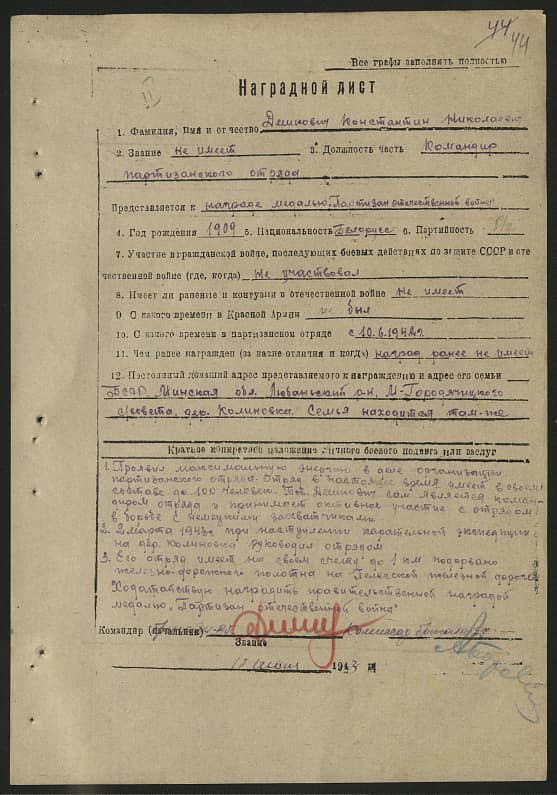 44 44
Все графы заполнять полностью
Наградной лист
II
1. Фамилия, имя и отчество Дешкович Константин Николаевич
2. Звание не имеет 3. Должность часть Командир
партизанского отряда
Представляется к награде медалью "Партизан отечественной войны"
4. Год рождения 1909 5. Национальность Белорусс 6. Партийность б/п
7. Участие в гражданской войне, последующих боевых действиях по защите СССР и оте
чественной войне (где, когда) не участвовал
8. Имеет ли ранение и контузии в отечественной войне не имеет
9 С какого времени в Красной Армии не был
10. С какого времени в партизанском отряде с 10.6.1942г.
11. Чем ранее награжден (за какие отличия и когда) наград ранее не имеет
12. Постоянный домашний адрес представляемого к награждению и адрес его семьи
БССР Минская обл. Любаньский р-н, М-Городятицкого
с/совета, дер. Калиновка. Семья находится там-же
Краткое конкретное изложение личного боевого подвига или заслуг
1. Проявил максимальную энергию в деле организации
партизанского отряда. Отряд в настоящее время имеет в своем
составе до 100 человек. Тов. Дешкович сам является коман-
диром отряда и принимает активное участие с отрядом
в борьбе с немецкими захватчиками
2. 2 марта 1943г. при наступлении карательной экспедиции
на дер. Калиновка руководил отрядом
3. Его отряд имеет на своем счету до 1 км подорвано
железно-дорожного полотна на железной дороге
Ходатайствую наградить правительственной наградой
медалью "Партизан отечественной войны"
Командир (начальник) Комиссар
Звание
1943 г.